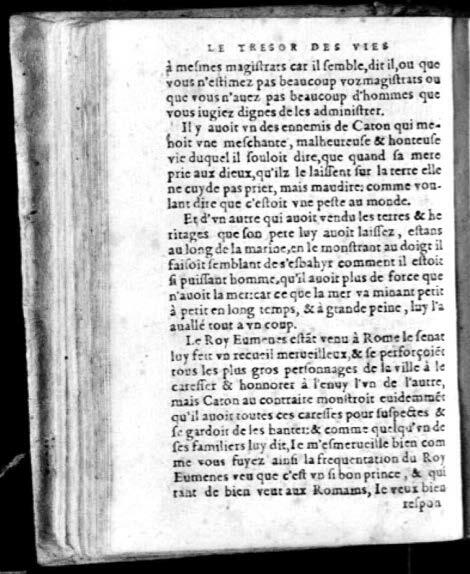 LE TRESOR DES VIES
à mesmes magistrats car il semble, dit il, ou que
vous n'estimez pas beaucoup voz magistrats ou
que vous n'auez pas beaucoup d'hommes que
vous iugiez dignes de les administrer.
Il y auoit vn des ennemis de Caton qui me-
noit vne meschante, malheureuse & honteuse
vie duquel il souloit dire, que quand sa mere
prie aux dieux, qu'ilz le laissent sur la terre elle
ne cuyde pas prier, mais maudire: comme vou-
lant dire que c'estoit vne peste au monde.
Et d'vn autre qui auoit vendu les terres & he
ritages que son pere luy auoit laissez, estans
au long de la marine, en le monstrant au doigt il
faisoit semblant de s'esbahyr comment il estoit
si puissant homme, qu'il auoit plus de force que
n'auoit la mer: car ce que la mer va minant petit
à petit en long temps, & à grande peine, luy l'a
auallé tout a vn coup.
Le Roy Eumenes estãt venu à Rome le senat
luy feit vn recueil merueilleux, & se perforçoiẽt
tous les plus gros personnages de la ville à le
caresser & honnorer à l'enuy l'vn de l'autre,
mais Caton au contraire monstroit euidemmẽt
qu'il auoit toutes ces caresses pour suspectes &
se gardoit de les hanter: & comme quelqu'vn de
ses familiers luy dit, Ie m'esmerueille bien com
me vous fuyez ainsi la frequentation du Roy
Eumenes veu que c'est vn si bon prince, & qui
tant de bien veut aux Romains, Ie veux bien
respon